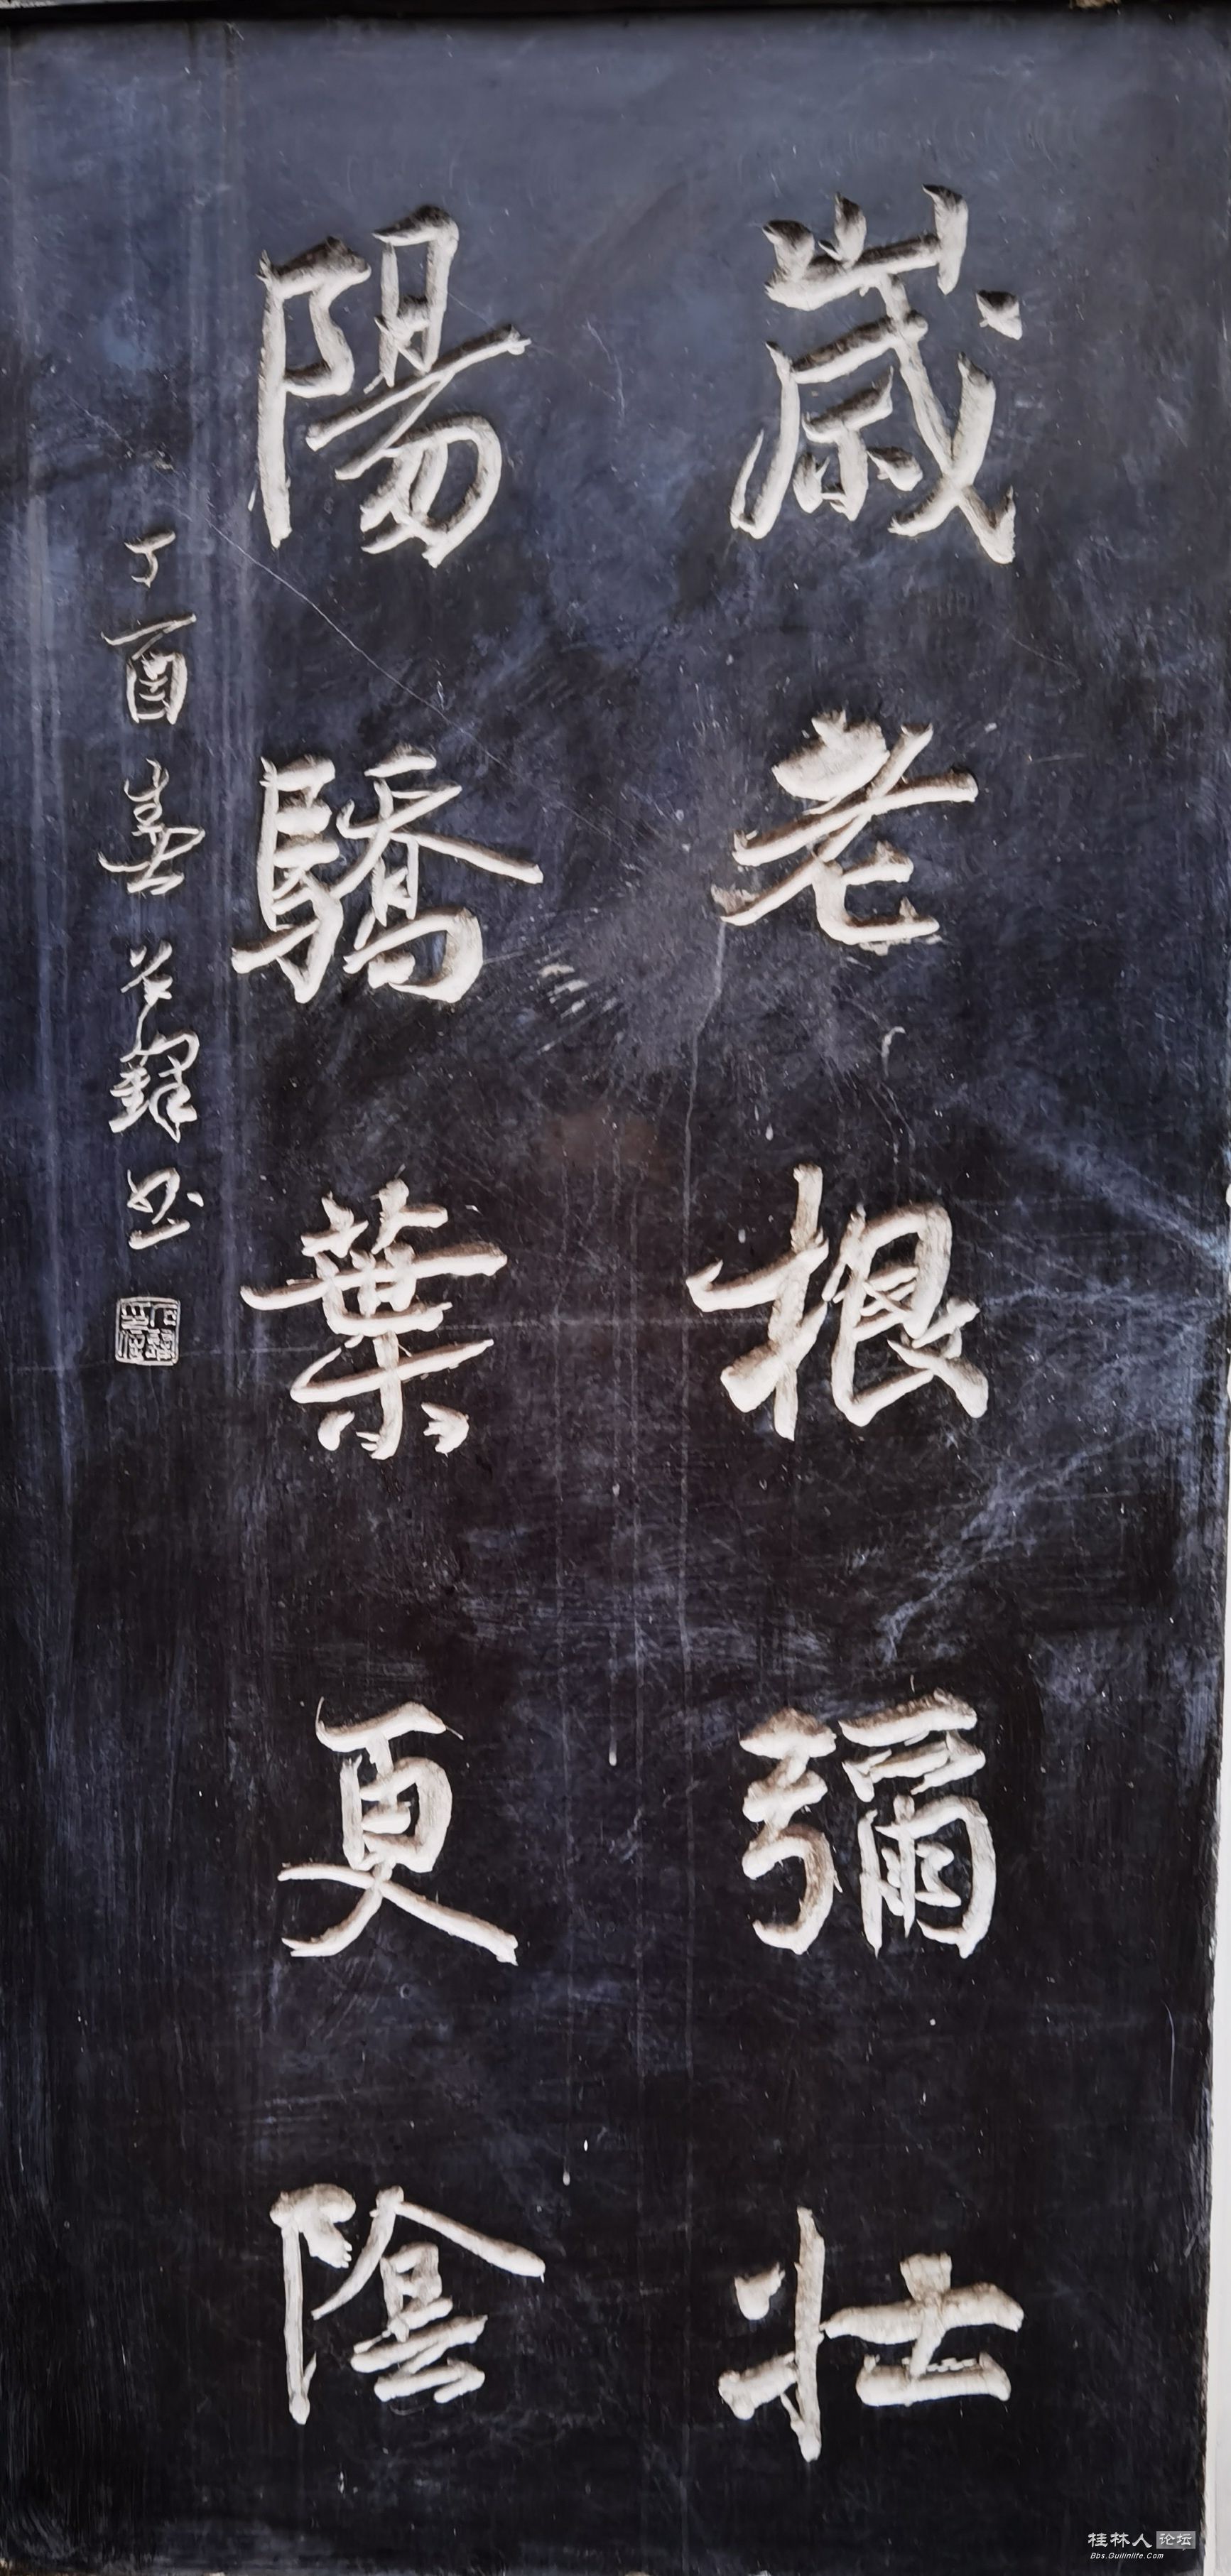 歲老根彌壯
陽驕葉更陰
丁酉春 書
桂林人论坛
Bbs.Guilinlife.Com